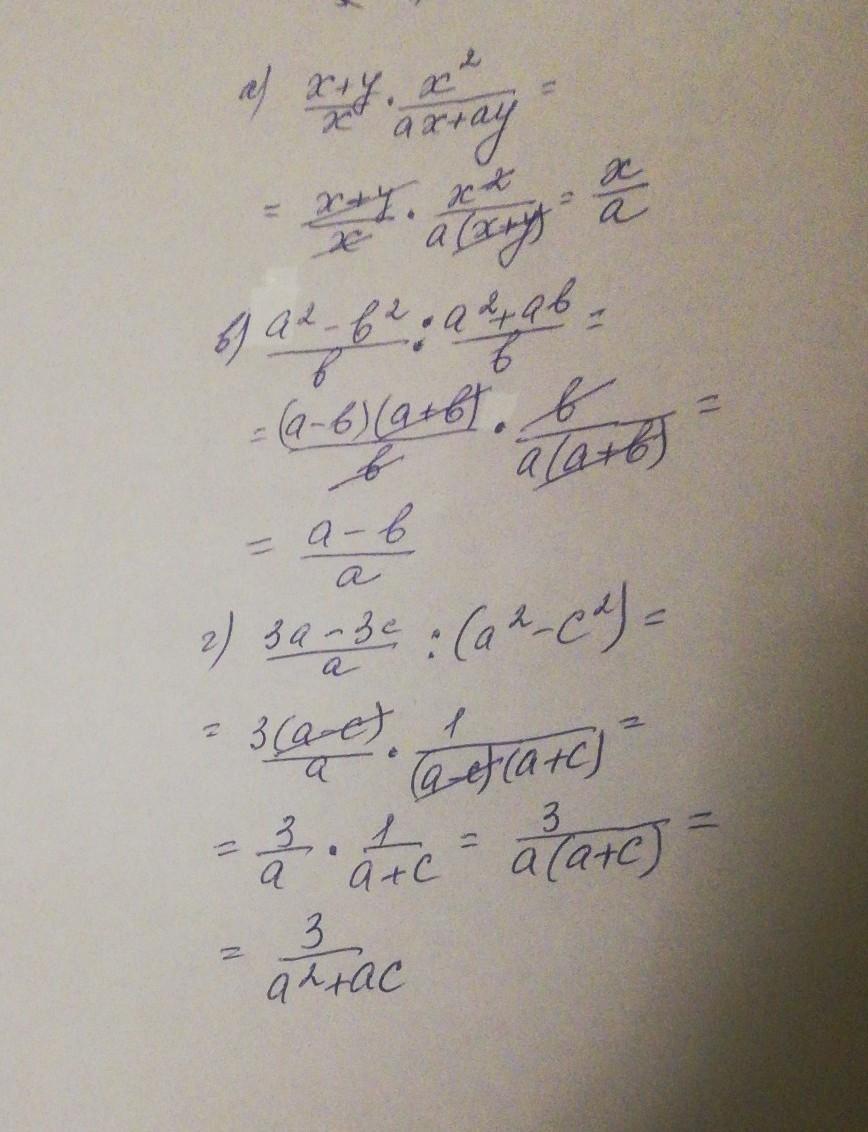 а) (x+y)/x · x²/(ax+ay) =
= (x+y)/x · x²/(a(x+y)) = x/a
в) (a² - b²)/b : (a² + ab)/b =
= ((a-b)(a+b))/b · b/(a(a+b)) =
= (a - b)/a
г) (3a - 3c)/a : (a² - c²) =
= (3(a-c))/a · 1/((a-c)(a+c)) =
= 3/a · 1/(a+c) = 3/(a(a+c)) =
= 3/(a²+ac)